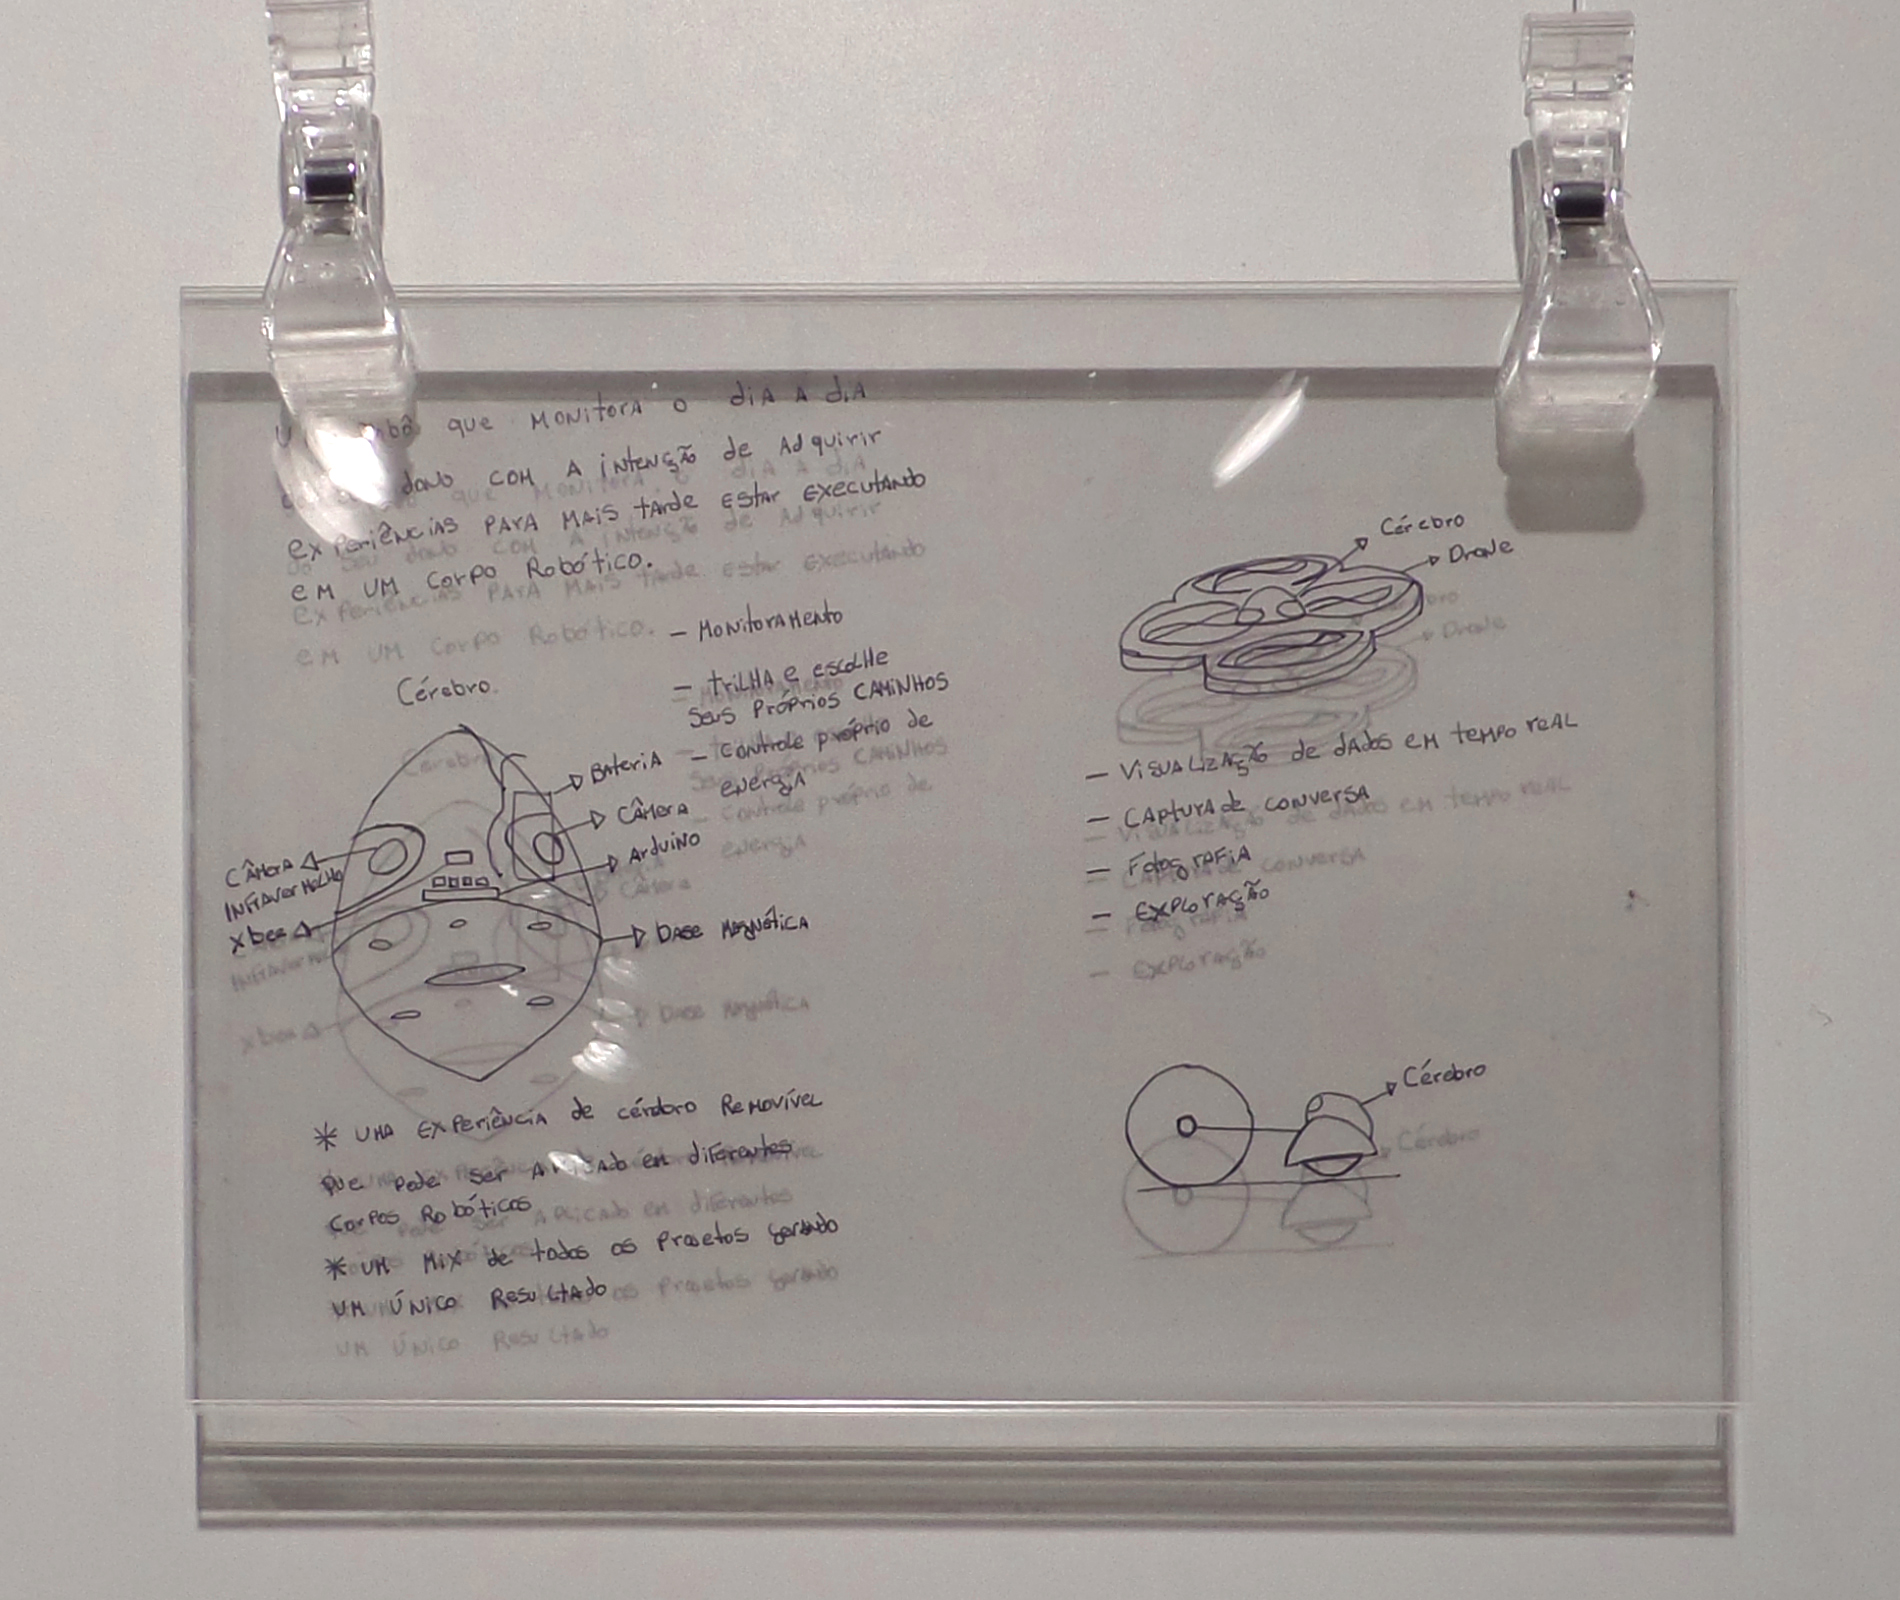 que MONitorA o diA A diA
do seu dono COM A intenção de Adquirir
experiências PARA MAis tArde EStAr EXECUTANdo
eM UM Corpo Robótico.
Cérebro.
– MONitorAMento
– trilHA e escolHe
Seus Próprios CAMiNHOS
– Controle próprio de
energiA
BAteriA
CÂMerA
Arduino
CÂMerA
INFrAverMelHo
xbee
bAse MAgnéticA
* UMA EXPeriênciA de cérebro ReMovível
que pode Ser APlicAdo em diFerentes
Corpos Robóticos
* UM MiX de todos os Projetos gerando
UM Único ResultAdo
Cérebro
Drone
– VisuALizAção de dAdos eM tempo reAL
– CApturA de conversA
– FotogrAFiA
– EXPLorAção
Cérebro